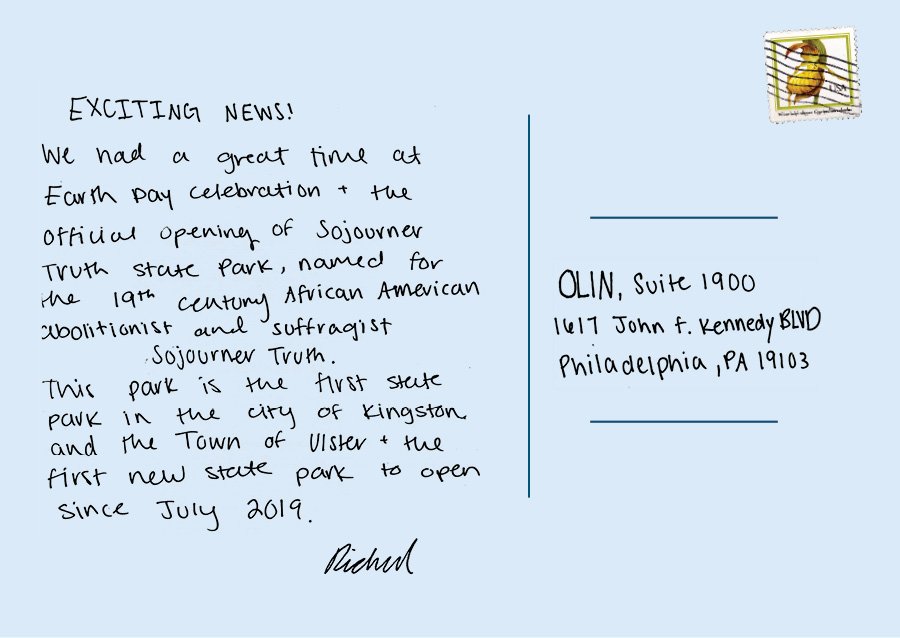 EXCITING NEWS!
We had a great time at
Earth Day Celebration + the
official opening of Sojourner
Truth State Park, named for
the 19th century African American
abolitionist and suffragist
Sojourner Truth.
This park is the first state
park in the city of Kingston
and the Town of Ulster + the
first new state park to open
since July 2019.
Richard
USA
OLIN, Suite 1900
1617 John F. Kennedy BLVD
Philadelphia, PA 19103